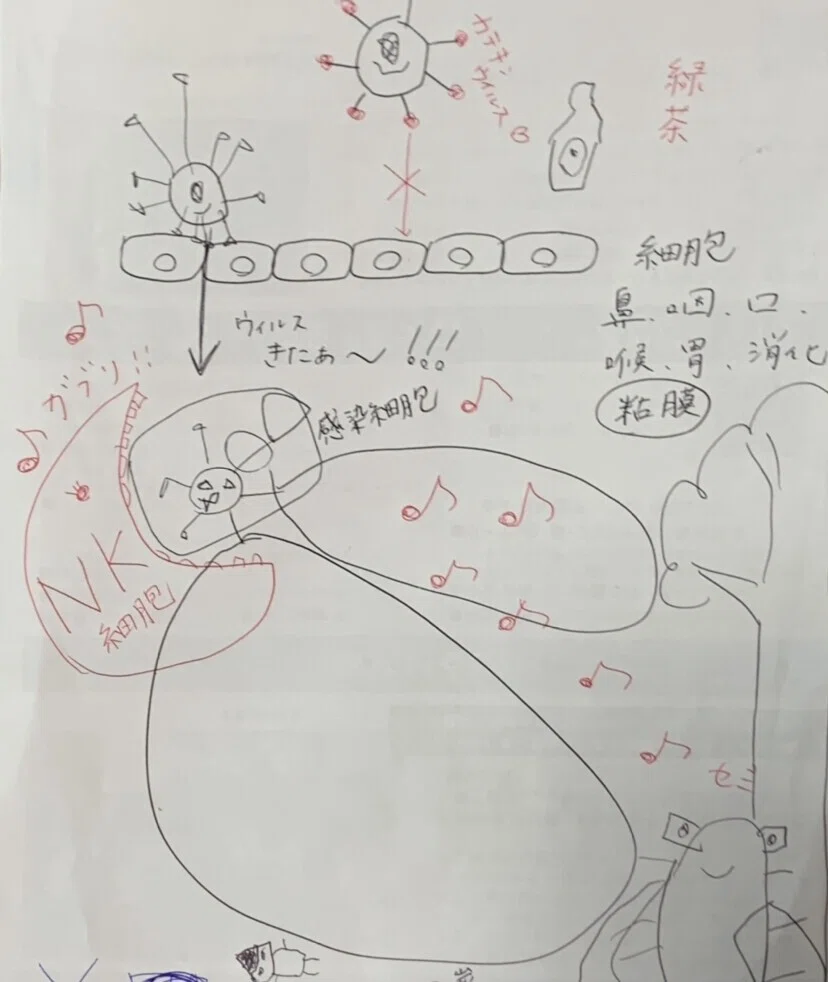 カテキン
ウィルス
緑茶
細胞
鼻、咽、口、
喉、胃、消化
粘膜
ウィルス
きたぁ〜!!!
ガブリ!!
感染細胞
NK
細胞
セミ